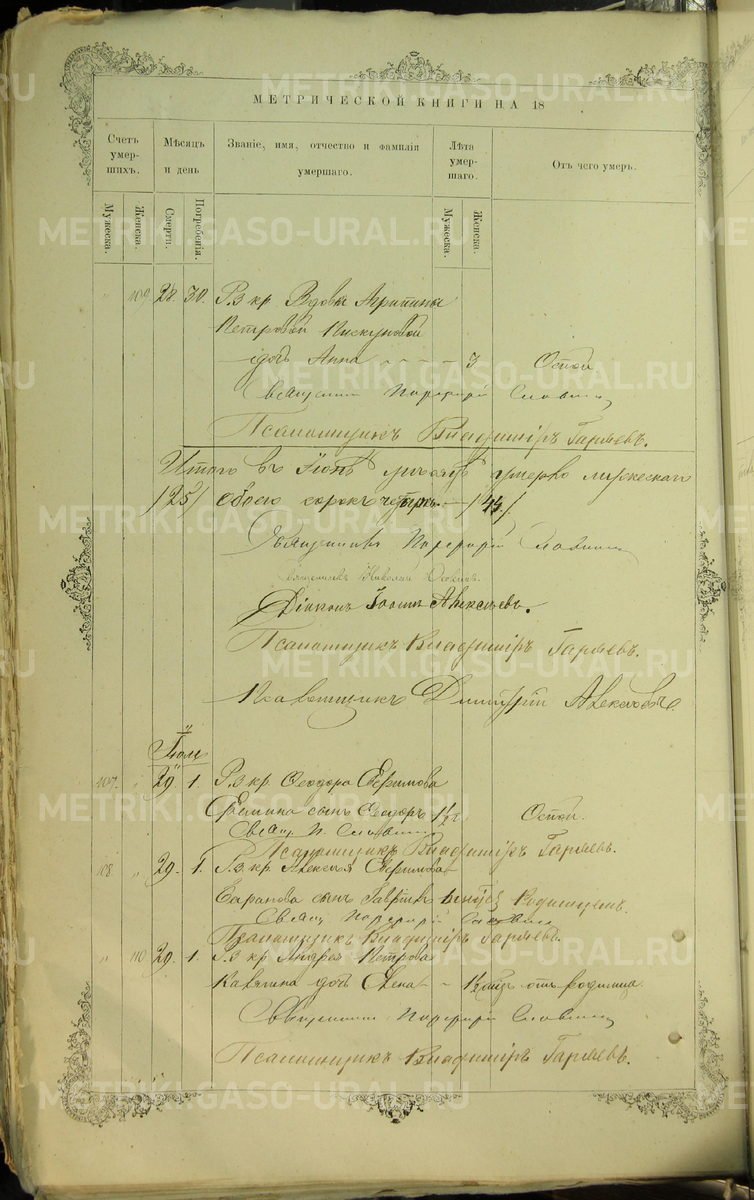 METRIKI.GASO-URAL.RU
МЕТРИЧЕСКОЙ КНИГИ НА 18
Счетъ умер-шихъ.
Мѣсяцъ и день
Званіе, имя, отчество и фамилія умершаго.
Лѣта умер-шаго.
Отъ чего умеръ.
Мужеска.
Женска.
Смерти.
Погребенія.
Мужеска.
Женска.
109 28. 30. Р. з. кр. Вдовы Агрипины
Петровой Пискуновой
дочь Анна 3. Оспой
Священникъ Порфирій Словцовъ
Псаломщикъ Владиміръ Гаряевъ.
Итого въ Іюнѣ мѣсяцѣ умерло мужескаго
/25/ обоего сорокъ четыре /44/
Священникъ Порфирій Словцовъ
Священникъ Николай
Діаконъ Іоаннъ Алексѣевъ.
Псаломщикъ Владиміръ Гаряевъ.
Псаломщикъ Димитрій
Іюль
107. " 29 1. Р. з. кр. Ѳеодора Ефимова
сынъ Ѳеодоръ 1½ г. Оспой.
Свящ. П. Словцовъ
Псаломщикъ Владиміръ Гаряевъ.
108 " 29. 1. Р. з. кр. Алексѣя Ефимова
Сарапова сынъ Гавріилъ Родимцемъ.
Свящ. Порфирій Словцовъ
Псаломщикъ Владиміръ Гаряевъ.
" 110 29. 1. Р. з. кр. Андрея Петрова
дочь Елена отъ родимца.
Священникъ Порфирій Словцовъ
Псаломщикъ Владиміръ Гаряевъ.